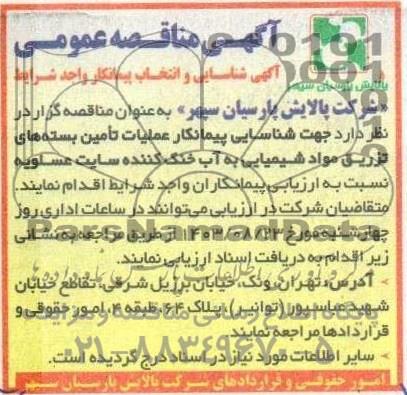 آگهی مناقصه عمومی
آگهی شناسایی و انتخاب پیمانکار واجد شرایط
پالایش پارسیان سپهر
«شرکت پالایش پارسیان سپهر» به عنوان مناقصه گزار در
نظر دارد جهت شناسایی پیمانکار عملیات تأمین بسته‌های
تزریق مواد شیمیایی به آب خنک کننده سایت عسلویه
نسبت به ارزیابی پیمانکاران واجد شرایط اقدام نمایند.
متقاضیان شرکت در ارزیابی می‌توانند در ساعات اداری روز
چهارشنبه مورخ ۱۴۰۳/۰۸/۲۳ از طریق مراجعه به نشانی
زیر اقدام به دریافت اسناد ارزیابی نمایند.
- آدرس: تهران، ونک، خیابان برزیل شرقی، تقاطع خیابان
شهید عباسپور (توانیر)، پلاک ۶۴ طبقه ۴، امور حقوقی و
قراردادها مراجعه نمایند.
- سایر اطلاعات مورد نیاز در اسناد درج گردیده است.
امور حقوقی و قراردادهای شرکت پالایش پارسیان سپهر
ParsNamadData
پایگاه اطلاع رسانی مناقصه و مزایده
۰۲۱-۸۸۳۴۹۶۷۰-۵